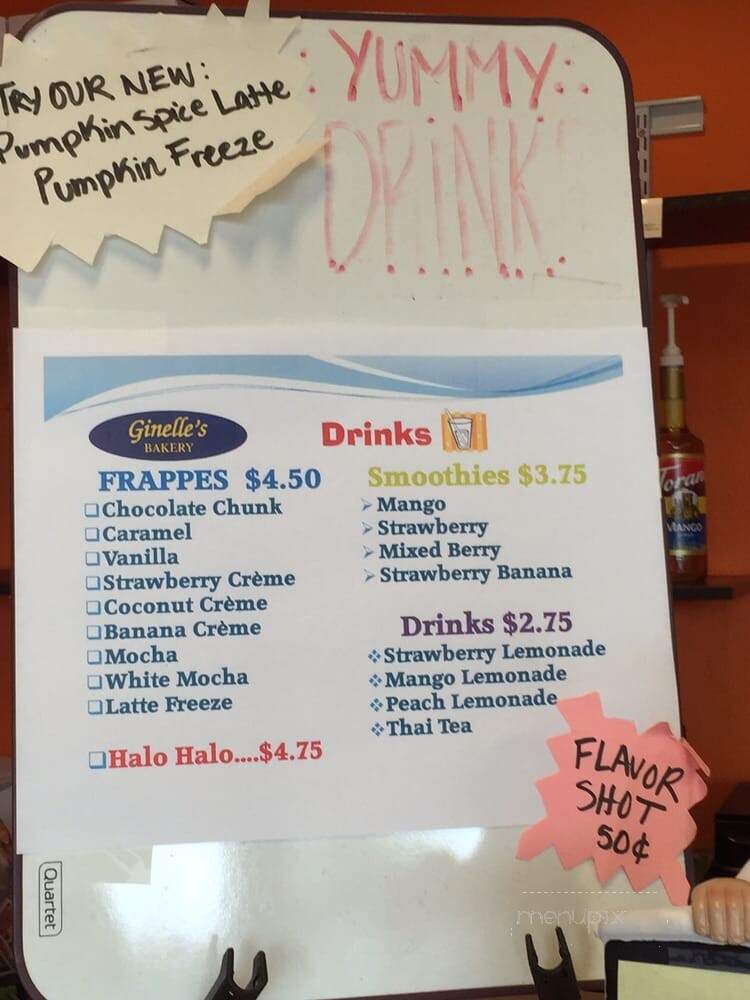 TRY OUR NEW:
Pumpkin Spice Latte
Pumpkin Freeze
YUMMY
DRINK
Ginelle's
BAKERY
Drinks
FRAPPES $4.50
❑Chocolate Chunk
❑Caramel
❑Vanilla
❑Strawberry Crème
❑Coconut Crème
❑Banana Crème
❑Mocha
❑White Mocha
❑Latte Freeze
❑Halo Halo....$4.75
Smoothies $3.75
➢ Mango
➢ Strawberry
➢ Mixed Berry
➢ Strawberry Banana
Drinks $2.75
❖Strawberry Lemonade
❖Mango Lemonade
❖Peach Lemonade
❖Thai Tea
FLAVOR
SHOT
50¢
Torani
MANGO
Quartet
menupix